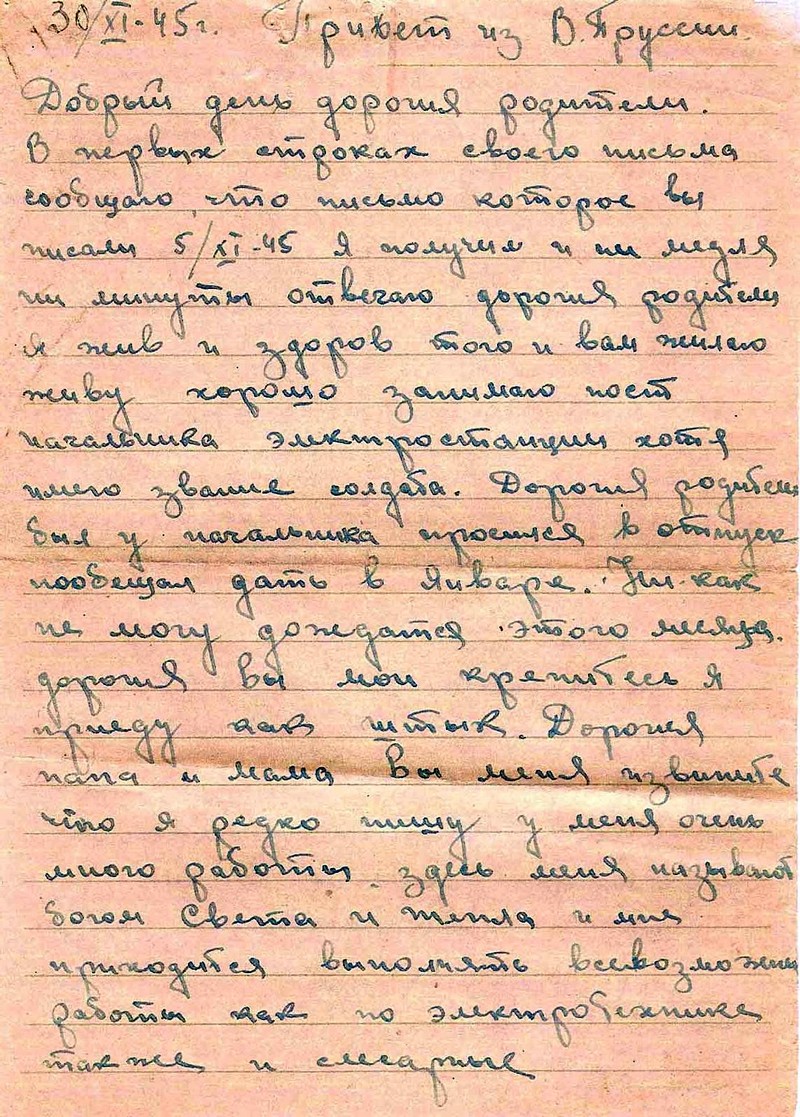 30/XI-45г. Привет из В.Пруссии.
Добрый день дорогия родители.
В первых строках своего письма
сообщаю, что письмо которое вы
писали 5/XI-45 я получил и ни медля
ни минуты отвечаю дорогия родители
я жив и здоров того и вам жилаю
живу хорошо занимаю пост
начальника электростанции хотя
имею звание солдата. Дорогия родители
был у начальника просился в отпуск
пообещал дать в январе. Ни как
не могу дождатся этого месяца.
дорогия вы мои крепитесь я
приеду как штык. Дорогия
папа и мама Вы меня извините
что я редко пишу у меня очень
много работы. здесь меня называют
богом Света и тепла и мне
приходится выполнять всевозможны
работы как по электротехнике
так же и слесарные